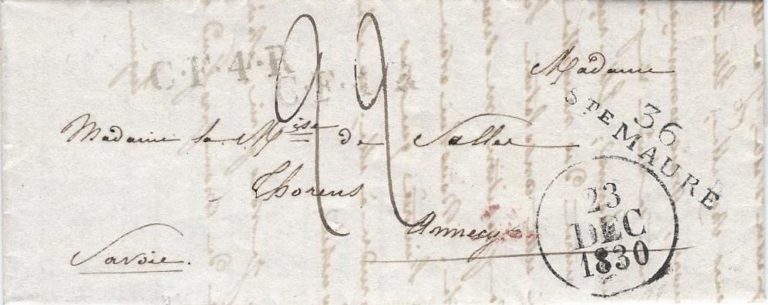 C.F.4.R
C.F.4.R
Madame
36
STE MAURE
Madame la Mise de Salles
Thorens
Annecy
Savoie.
22
23
DEC
1830